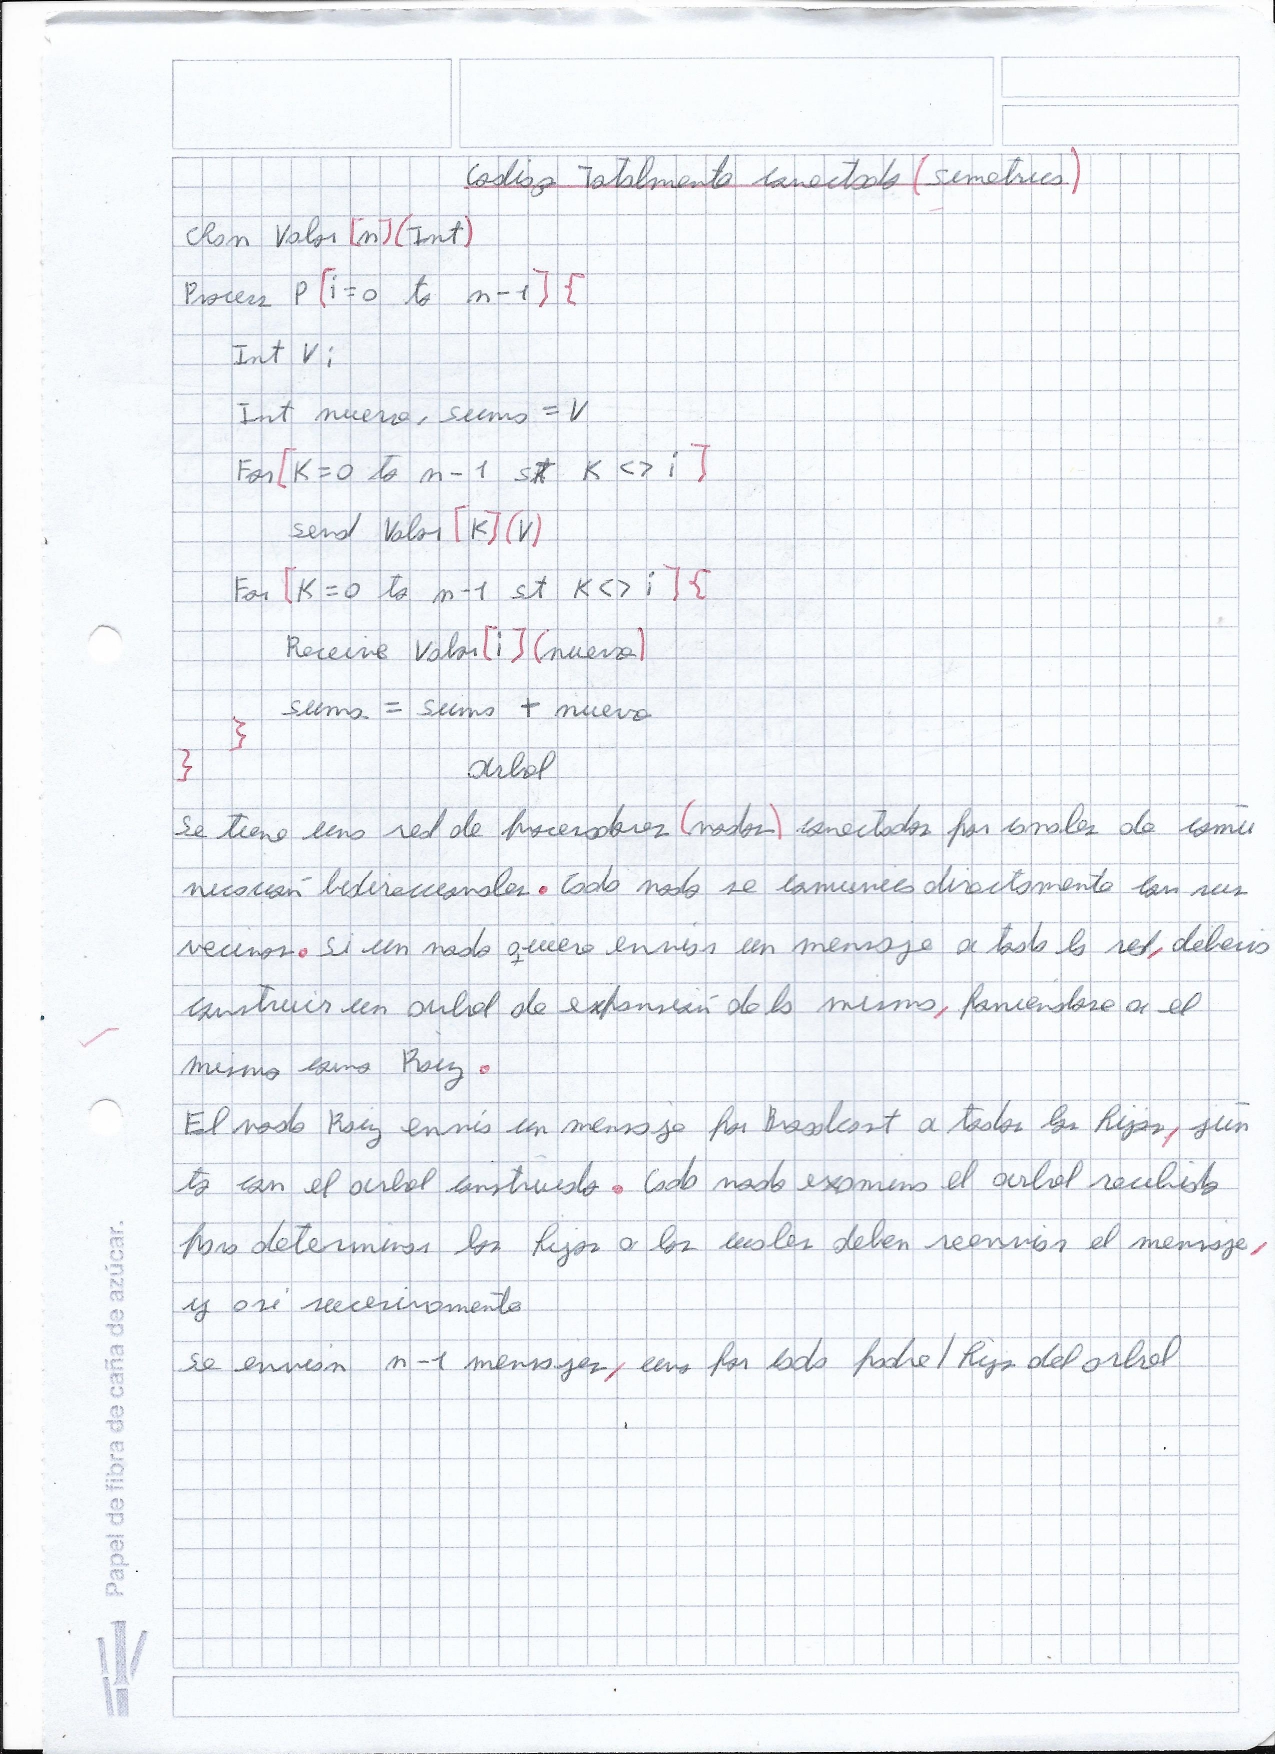 Codigo Totalmente conectado (simetrico)
Chan Valor [n](Int)
Process P [i=0 to n-1] {
Int V;
Int nuevo, suma = V
For [K=0 to n-1 st K <> i]
send Valor [K](V)
For [K=0 to n-1 st K <> i] {
Receive Valor [i](nuevo)
suma = suma + nuevo
}
}
arbol
Se tiene una red de procesadores (nodos) conectados por canales de comu
nicación bidireccionales. Cada nodo se comunica directamente con sus
vecinos. Si un nodo quiere enviar un mensaje a toda la red, deberia
construir un arbol de expansión de la misma, poniendose a el
mismo como Raiz.
El nodo Raiz envia un mensaje por Broadcast a todos los hijos, jun
to con el arbol construido. Cada nodo examina el arbol recibido
para determinar los hijos a los cuales deben reenviar el mensaje,
y asi sucesivamente
se envian n-1 mensajes, uno por cada padre/hijo del arbol
Papel de fibra de caña de azúcar.